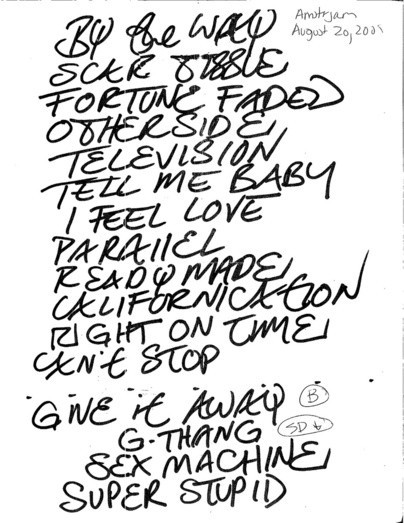 BY the WAY
Amstrjam
August 20, 2005
SCAR TISSUE
FORTUNE FADED
OTHERSIDE
TELEVISION
TELL ME BABY
I FEEL LOVE
PARAllEL
READYMADE
CALIFORNICATION
RIGHT ON TIME
CAN't STOP
GIVE it AWAY B
G-THANG SD
SEX MACHINE
SUPER STUPID